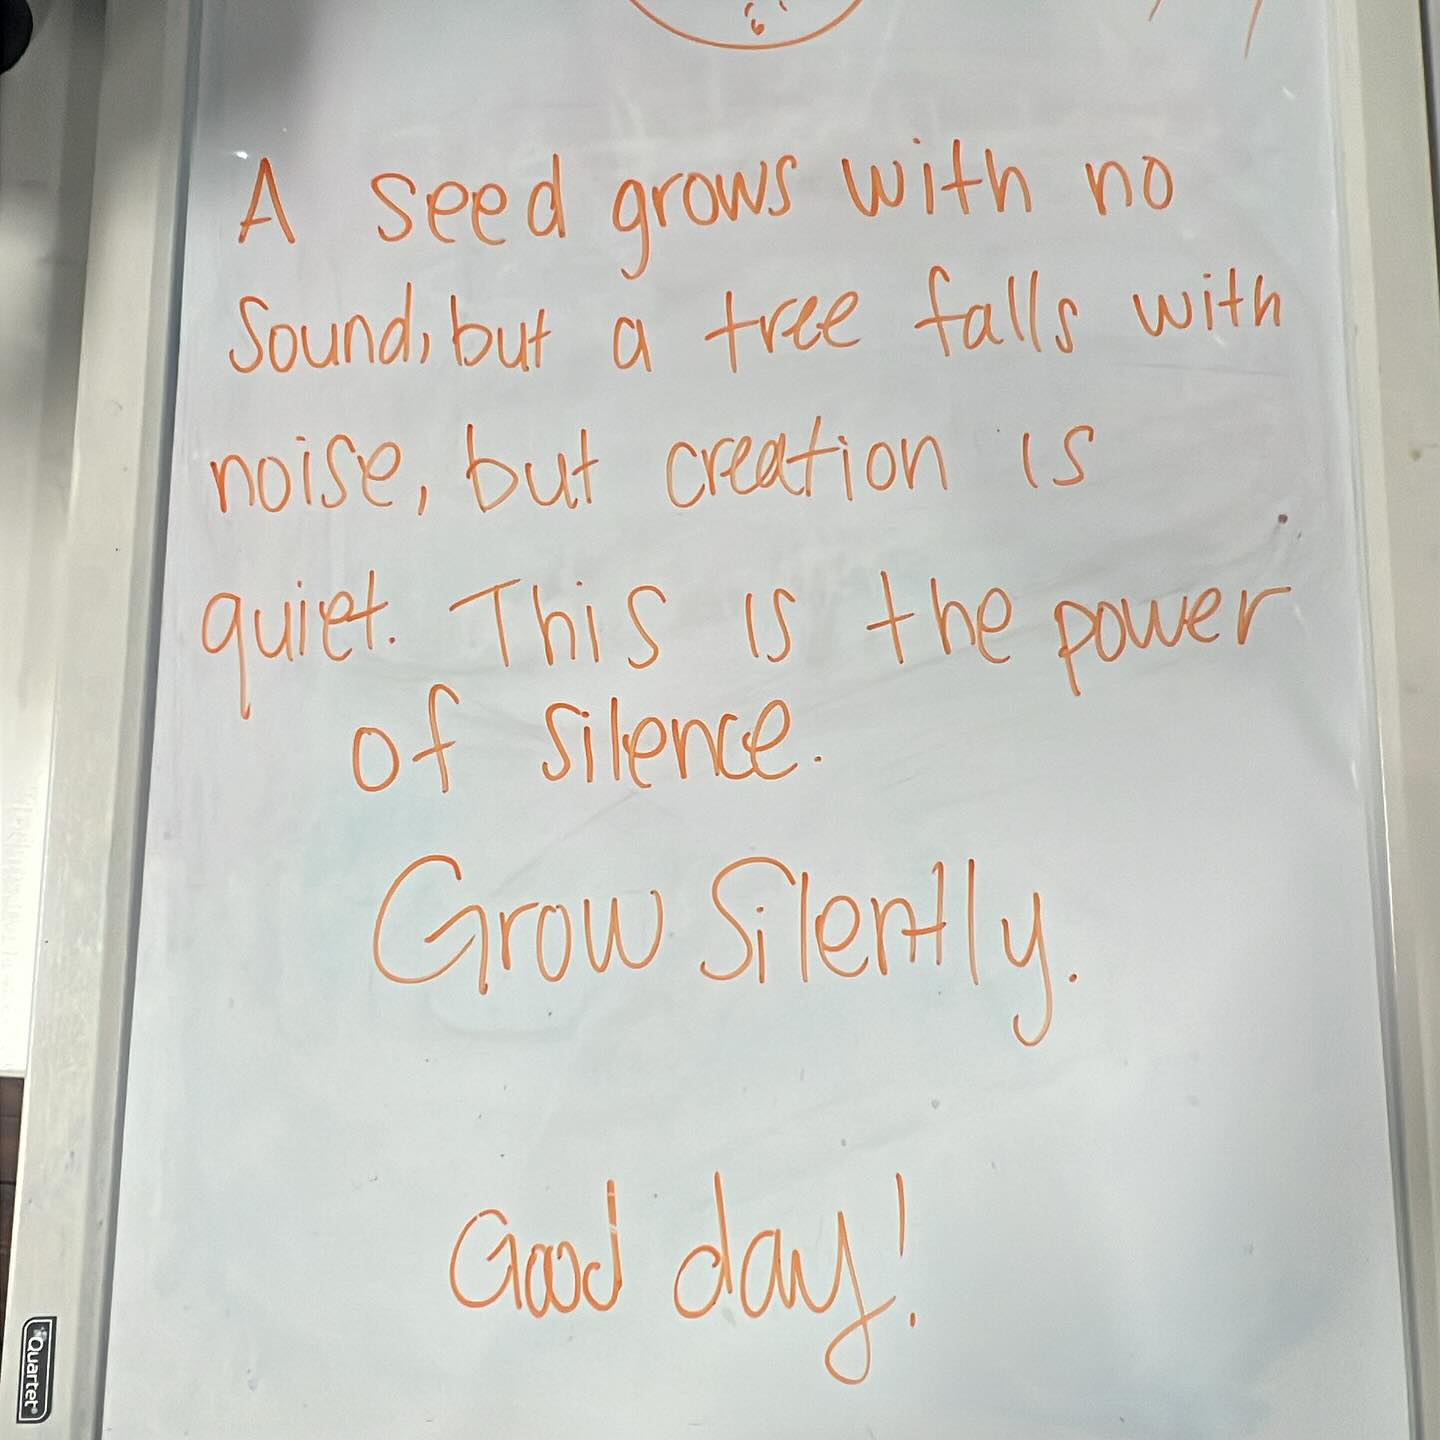 6
A seed grows with no
Sound, but a tree falls with
noise, but creation is
quiet. This is the power
of silence.
Grow Silently.
Good day!
Quartet